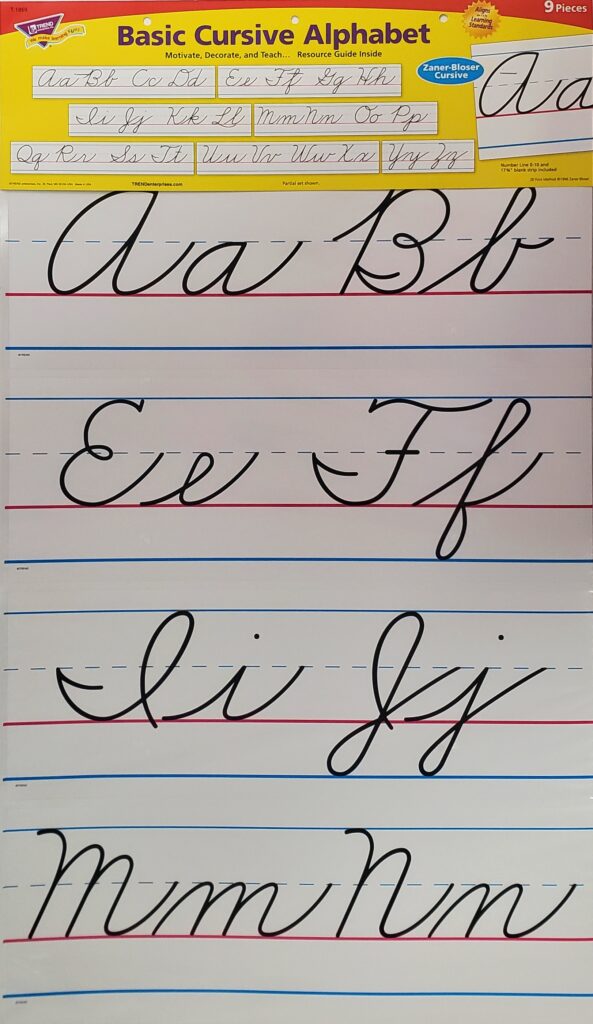 T-1869
9 Pieces
TREND
We make learning fun!
Basic Cursive Alphabet
Aligns with Learning Standards
Motivate, Decorate, and Teach... Resource Guide Inside
Zaner-Bloser
Cursive
Aa Bb Cc Dd Ee Ff Gg Hh
Aa
Ii Jj Kk Ll Mm Nn Oo Pp
Qq Rr Ss Tt Uu Vv Ww Xx Yy Zz
Number Line 0-10 and
17¾" blank strip included!
TRENDenterprises.com
Partial set shown.
Aa Bb
©TREND
Ee Ff
©TREND
Ii Jj
©TREND
Mm Nn
©TREND